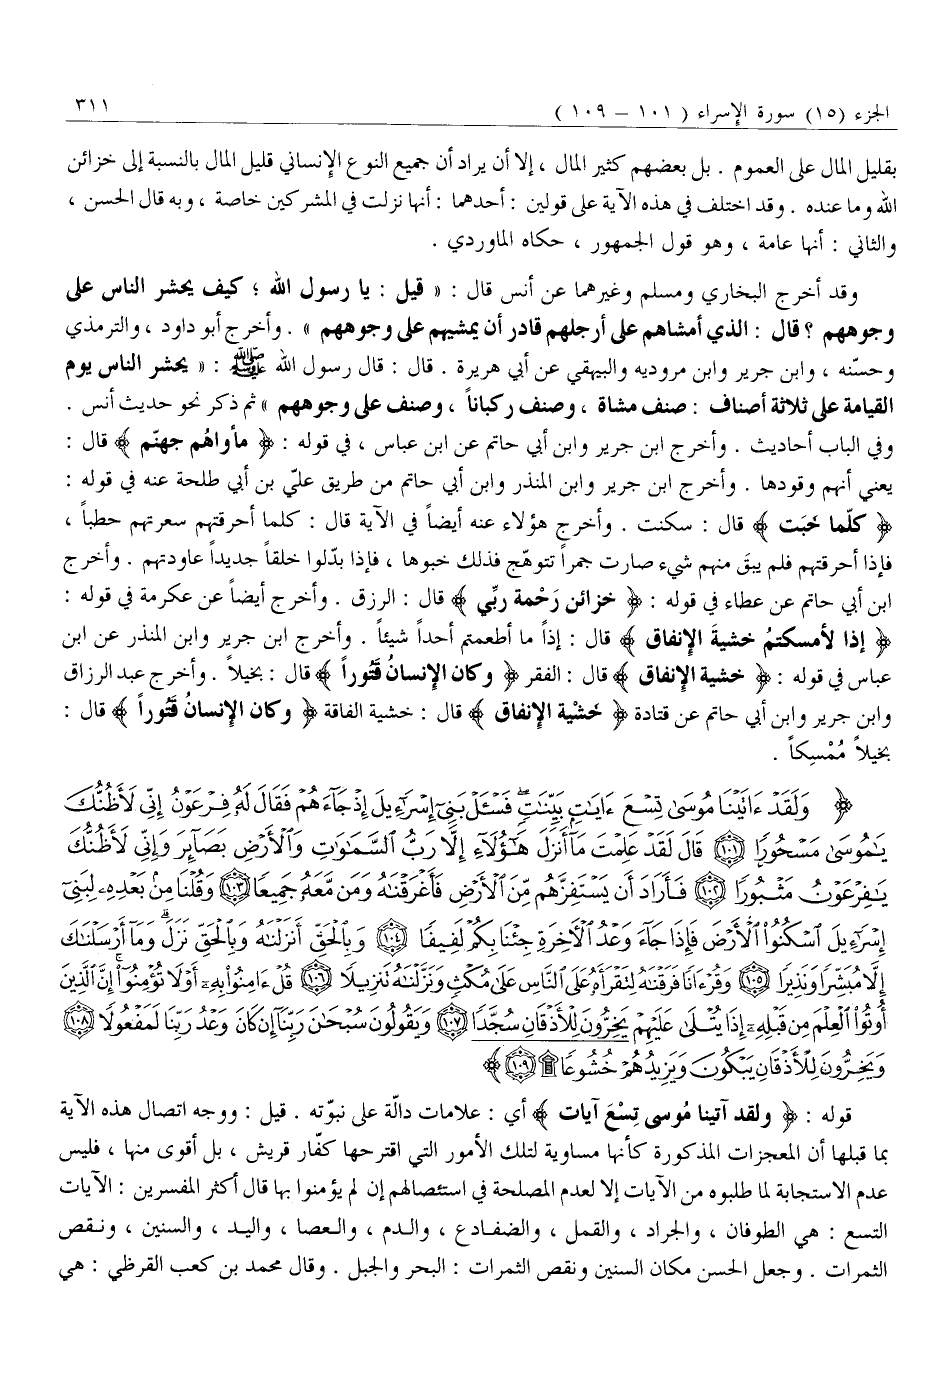 الجزء (١٥) سورة الإسراء ( ١٠١ – ١٠٩ ) ٣١١
بقليل المال على العموم . بل بعضهم كثير المال ، إلا أن يراد أن جميع النوع الإنساني قليل المال بالنسبة إلى خزائن
الله وما عنده . وقد اختلف في هذه الآية على قولين : أحدهما : أنها نزلت في المشركين خاصة ، وبه قال الحسن ،
والثاني : أنها عامة ، وهو قول الجمهور ، حكاه الماوردي .
وقد أخرج البخاري ومسلم وغيرهما عن أنس قال : « قيل : يا رسول الله ؛ كيف يحشر الناس على
وجوههم ؟ قال : الذي أمشاهم على أرجلهم قادر أن يمشيهم على وجوههم » . وأخرج أبو داود ، والترمذي
وحسّنه ، وابن جرير وابن مروديه والبيهقي عن أبي هريرة . قال : قال رسول الله ﷺ : « يحشر الناس يوم
القيامة على ثلاثة أصناف : صنف مشاة ، وصنف ركباناً ، وصنف على وجوههم » ثم ذكر نحو حديث أنس .
وفي الباب أحاديث . وأخرج ابن جرير وابن أبي حاتم عن ابن عباس ، في قوله : ﴿ مأواهُم جهنّم ﴾ قال :
يعني أنهم وقودها . وأخرج ابن جرير وابن المنذر وابن أبي حاتم من طريق عليّ بن أبي طلحة عنه في قوله :
﴿ كلّما خَبَت ﴾ قال : سكنت . وأخرج هؤلاء عنه أيضاً في الآية قال : كلما أحرقتهم سعرتهم حطباً ،
فإذا أحرقتهم فلم يبقَ منهم شيء صارت جمراً تتوهّج فذلك خبوها ، فإذا بدّلوا خلقاً جديداً عاودتهم . وأخرج
ابن أبي حاتم عن عطاء في قوله : ﴿ خزائن رَحْمة ربِّي ﴾ قال : الرزق . وأخرج أيضاً عن عكرمة في قوله :
﴿ إذا لأمسكتمُ خشيةَ الإنفاق ﴾ قال : إذاً ما أطعمتم أحداً شيئاً . وأخرج ابن جرير وابن المنذر عن ابن
عباس في قوله : ﴿ خشية الإنفاق ﴾ قال : الفقر ﴿ وكان الإنسانُ قَتُوراً ﴾ قال : بخيلاً . وأخرج عبد الرزاق
وابن جرير وابن أبي حاتم عن قتادة ﴿ خَشْية الإنفاق ﴾ قال : خشية الفاقة ﴿ وكان الإنسان قَتُوراً ﴾ قال :
بخيلاً مُمْسِكاً .
﴿ وَلَقَدْ ءَاتَيْنَا مُوسَىٰ تِسْعَ ءَايَٰتٍۭ بَيِّنَٰتٍۖ فَسْـَٔلْ بَنِىٓ إِسْرَٰٓءِيلَ إِذْ جَآءَهُمْ فَقَالَ لَهُۥ فِرْعَوْنُ إِنِّى لَأَظُنُّكَ
يَٰمُوسَىٰ مَسْحُورًا ١٠١ قَالَ لَقَدْ عَلِمْتَ مَآ أَنزَلَ هَٰٓؤُلَآءِ إِلَّا رَبُّ ٱلسَّمَٰوَٰتِ وَٱلْأَرْضِ بَصَآئِرَ وَإِنِّى لَأَظُنُّكَ
يَٰفِرْعَوْنُ مَثْبُورًا ١٠٢ فَأَرَادَ أَن يَسْتَفِزَّهُم مِّنَ ٱلْأَرْضِ فَأَغْرَقْنَٰهُ وَمَن مَّعَهُۥ جَمِيعًا ١٠٣ وَقُلْنَا مِنۢ بَعْدِهِۦ لِبَنِىٓ
إِسْرَٰٓءِيلَ ٱسْكُنُوا۟ ٱلْأَرْضَ فَإِذَا جَآءَ وَعْدُ ٱلْءَاخِرَةِ جِئْنَا بِكُمْ لَفِيفًا ١٠٤ وَبِٱلْحَقِّ أَنزَلْنَٰهُ وَبِٱلْحَقِّ نَزَلَۗ وَمَآ أَرْسَلْنَٰكَ
إِلَّا مُبَشِّرًا وَنَذِيرًا ١٠٥ وَقُرْءَانًا فَرَقْنَٰهُ لِتَقْرَأَهُۥ عَلَى ٱلنَّاسِ عَلَىٰ مُكْثٍ وَنَزَّلْنَٰهُ تَنزِيلًا ١٠٦ قُلْ ءَامِنُوا۟ بِهِۦٓ أَوْ لَا تُؤْمِنُوٓا۟ۚ إِنَّ ٱلَّذِينَ
أُوتُوا۟ ٱلْعِلْمَ مِن قَبْلِهِۦٓ إِذَا يُتْلَىٰ عَلَيْهِمْ يَخِرُّونَ لِلْأَذْقَانِ سُجَّدًا ١٠٧ وَيَقُولُونَ سُبْحَٰنَ رَبِّنَآ إِن كَانَ وَعْدُ رَبِّنَا لَمَفْعُولًا ١٠٨
وَيَخِرُّونَ لِلْأَذْقَانِ يَبْكُونَ وَيَزِيدُهُمْ خُشُوعًا ۩ ١٠٩ ﴾
قوله : ﴿ ولقد آتينا مُوسى تِسْعَ آيات ﴾ أي : علامات دالّة على نبوّته . قيل : ووجه اتصال هذه الآية
بما قبلها أن المعجزات المذكورة كأنها مساوية لتلك الأمور التي اقترحها كفّار قريش ، بل أقوى منها ، فليس
عدم الاستجابة لما طلبوه من الآيات إلا لعدم المصلحة في استئصالهم إن لم يؤمنوا بها قال أكثر المفسرين : الآيات
التسع : هي الطوفان ، والجراد ، والقمل ، والضفادع ، والدم ، والعصا ، واليد ، والسنين ، ونقص
الثمرات . وجعل الحسن مكان السنين ونقص الثمرات : البحر والجبل . وقال محمد بن كعب القرظي : هي